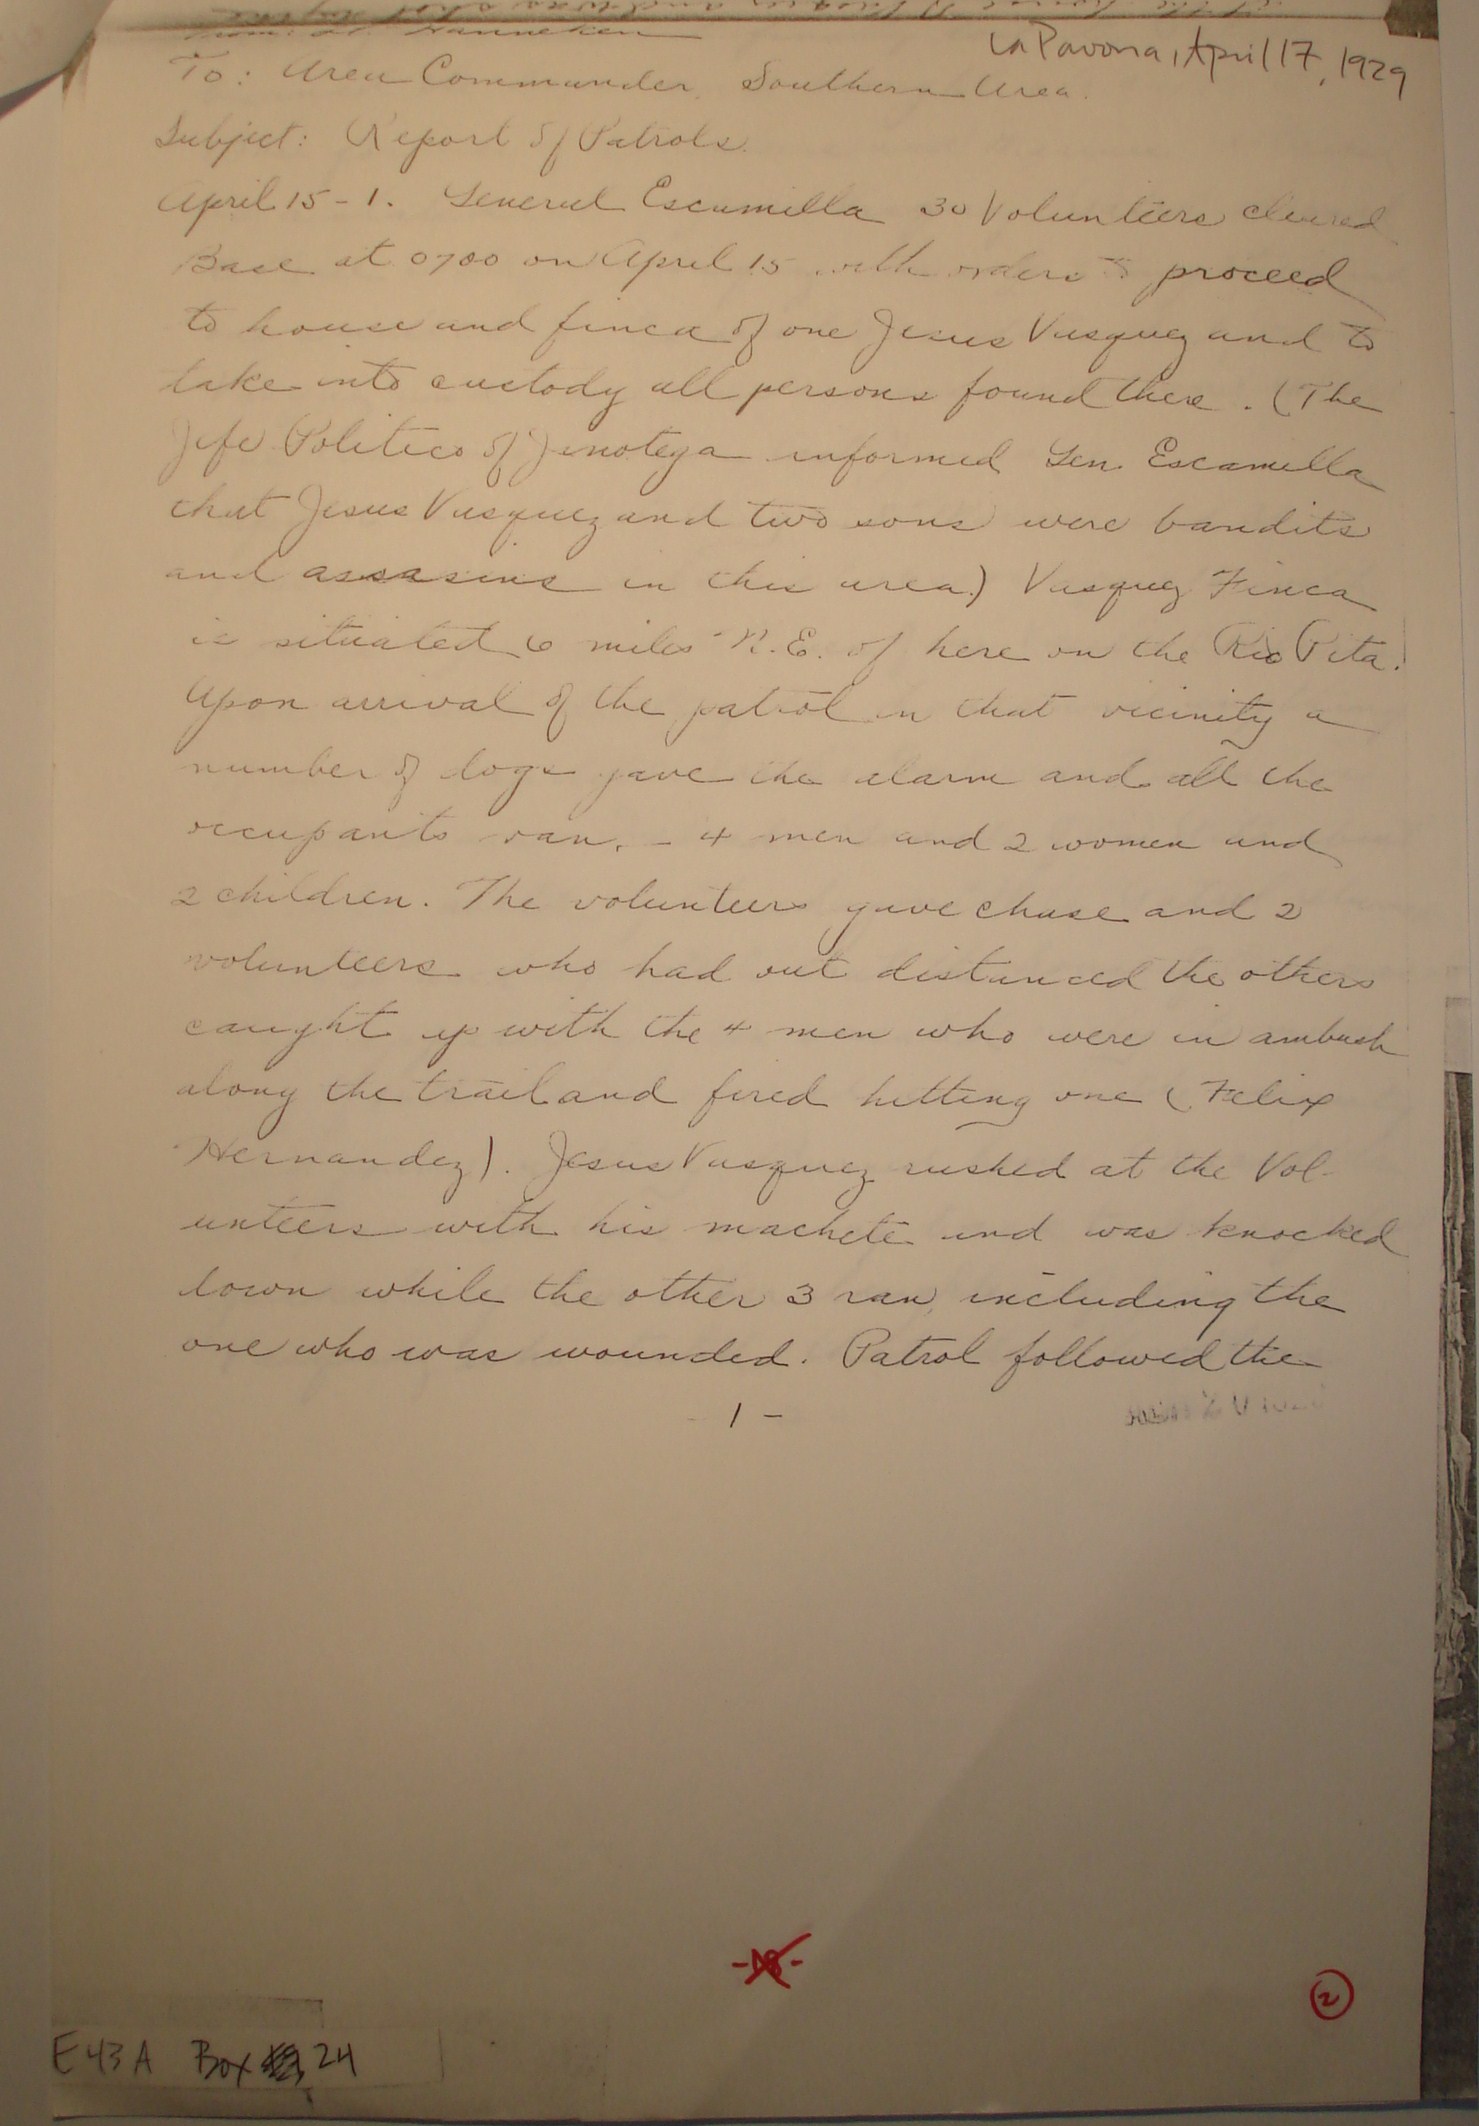 La Pavona, April 17, 1929
Hanneken
To: Area Commander, Southern Area.
Subject: Report of Patrols.
April 15 - 1. General Escamilla 30 Volunteers cleared
Base at 0700 on April 15 with orders to proceed
to house and finca of one Jesus Vasquez and to
take into custody all persons found there. (The
Jefe Politico of Jinotega informed Gen. Escamilla
that Jesus Vasquez and two sons were bandits
and assasins in this area.) Vasquez Finca
is situated 6 miles N.E. of here on the Rio Pita.
Upon arrival of the patrol in that vicinity a
number of dogs gave the alarm and all the
occupants ran, - 4 men and 2 women and
2 children. The volunteers gave chase and 2
volunteers who had out distanced the others
caught up with the 4 men who were in ambush
along the trail and fired hitting one (Felix
Hernandez). Jesus Vasquez rushed at the Vol-
unteers with his machete and was knocked
down while the other 3 ran, including the
one who was wounded. Patrol followed the
- 1 -
2
E43A Box 24